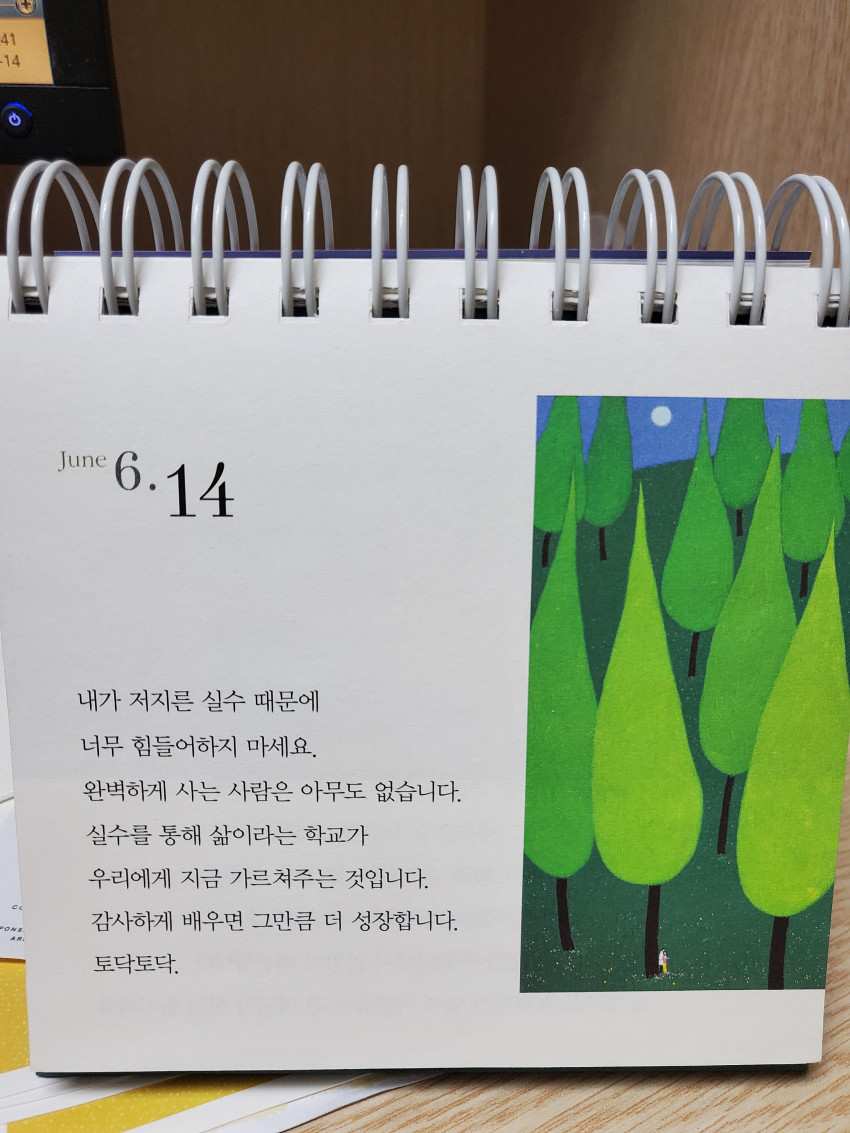 41
-14
June 6.14
내가 저지른 실수 때문에
너무 힘들어하지 마세요.
완벽하게 사는 사람은 아무도 없습니다.
실수를 통해 삶이라는 학교가
우리에게 지금 가르쳐주는 것입니다.
감사하게 배우면 그만큼 더 성장합니다.
토닥토닥.